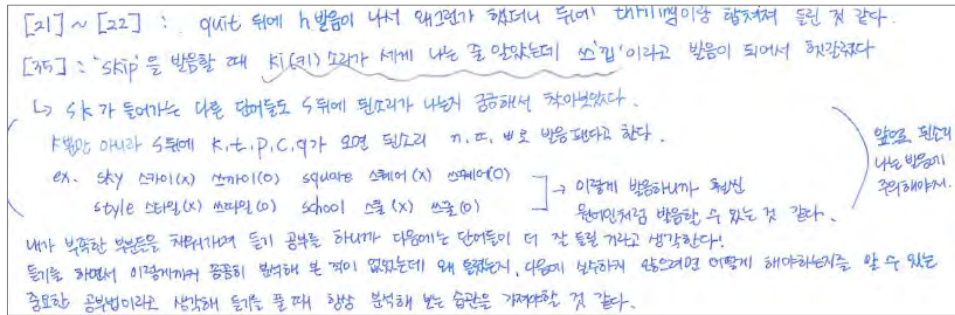 [21] ~ [22] : quit 뒤에 h발음이 나서 왜그런가 했더니 뒤에 thrilling이랑 합쳐져 들린 것 같다.
[35] : 'skip'을 발음할 때 ki(키) 소리가 세게 나는 줄 알았는데 쓰'낍'이라고 발음이 되어서 헷갈렸다
↳ sk가 들어가는 다른 단어들도 s뒤에 된소리가 나는지 궁금해서 찾아보았다.
k뿐만 아니라 s뒤에 k, t, p, c, q가 오면 된소리 ㄲ, ㄸ, ㅃ로 발음 된다고 한다.
ex. sky 스카이(x) 쓰까이(o) square 스퀘어(x) 쓰꿰어(o)
style 스타일(x) 쓰따일(o) school 스쿨(x) 쓰꿀(o)
→ 이렇게 발음하니까 훨씬
원어민처럼 발음할 수 있는 것 같다.
앞으로 된소리
나는 발음에
주의해야지.
내가 부족한 부분들을 채워가며 듣기 공부를 하니까 다음에는 단어들이 더 잘 들릴 거라고 생각한다!
듣기를 하면서 이렇게까지 꼼꼼히 분석해 본 적이 없었는데 왜 틀렸는지, 다음에 실수하지 않으려면 어떻게 해야하는지를 알 수 있는
중요한 공부법이라고 생각해 듣기를 풀 때 항상 분석해 보는 습관을 가져야할 것 같다.